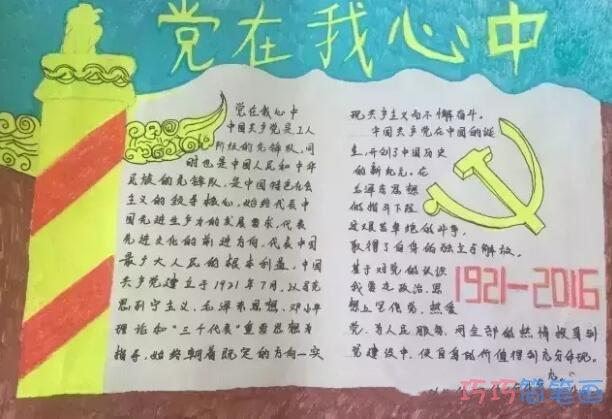 党在我心中
党在我心中
中国共产党是工人
阶级的先锋队，同
时也是中国人民和中华
民族的先锋队，是中国特色社会
主义的领导核心，始终代表中
国先进生产力的发展要求，代表
先进文化的前进方向，代表中国
最广大人民的根本利益。中国
共产党建立于1921年7月，以马克
思列宁主义、毛泽东思想、邓小平
理论和"三个代表"重要思想为
指导，始终朝着既定的方向一实
现共产主义而不懈奋斗。
中国共产党在中国的诞
生，开创了中国历史
的新纪元。在
毛泽东思想
的指引下经
过艰苦卓绝的斗争，
取得了自身的独立与解放。
基于对党的认识
我要走政治、思
想上坚信党、热爱
党，为人民服务，用全部的热情投身到
党建设中，使自身的价值得到充分体现。
1921—2016
巧巧简笔画